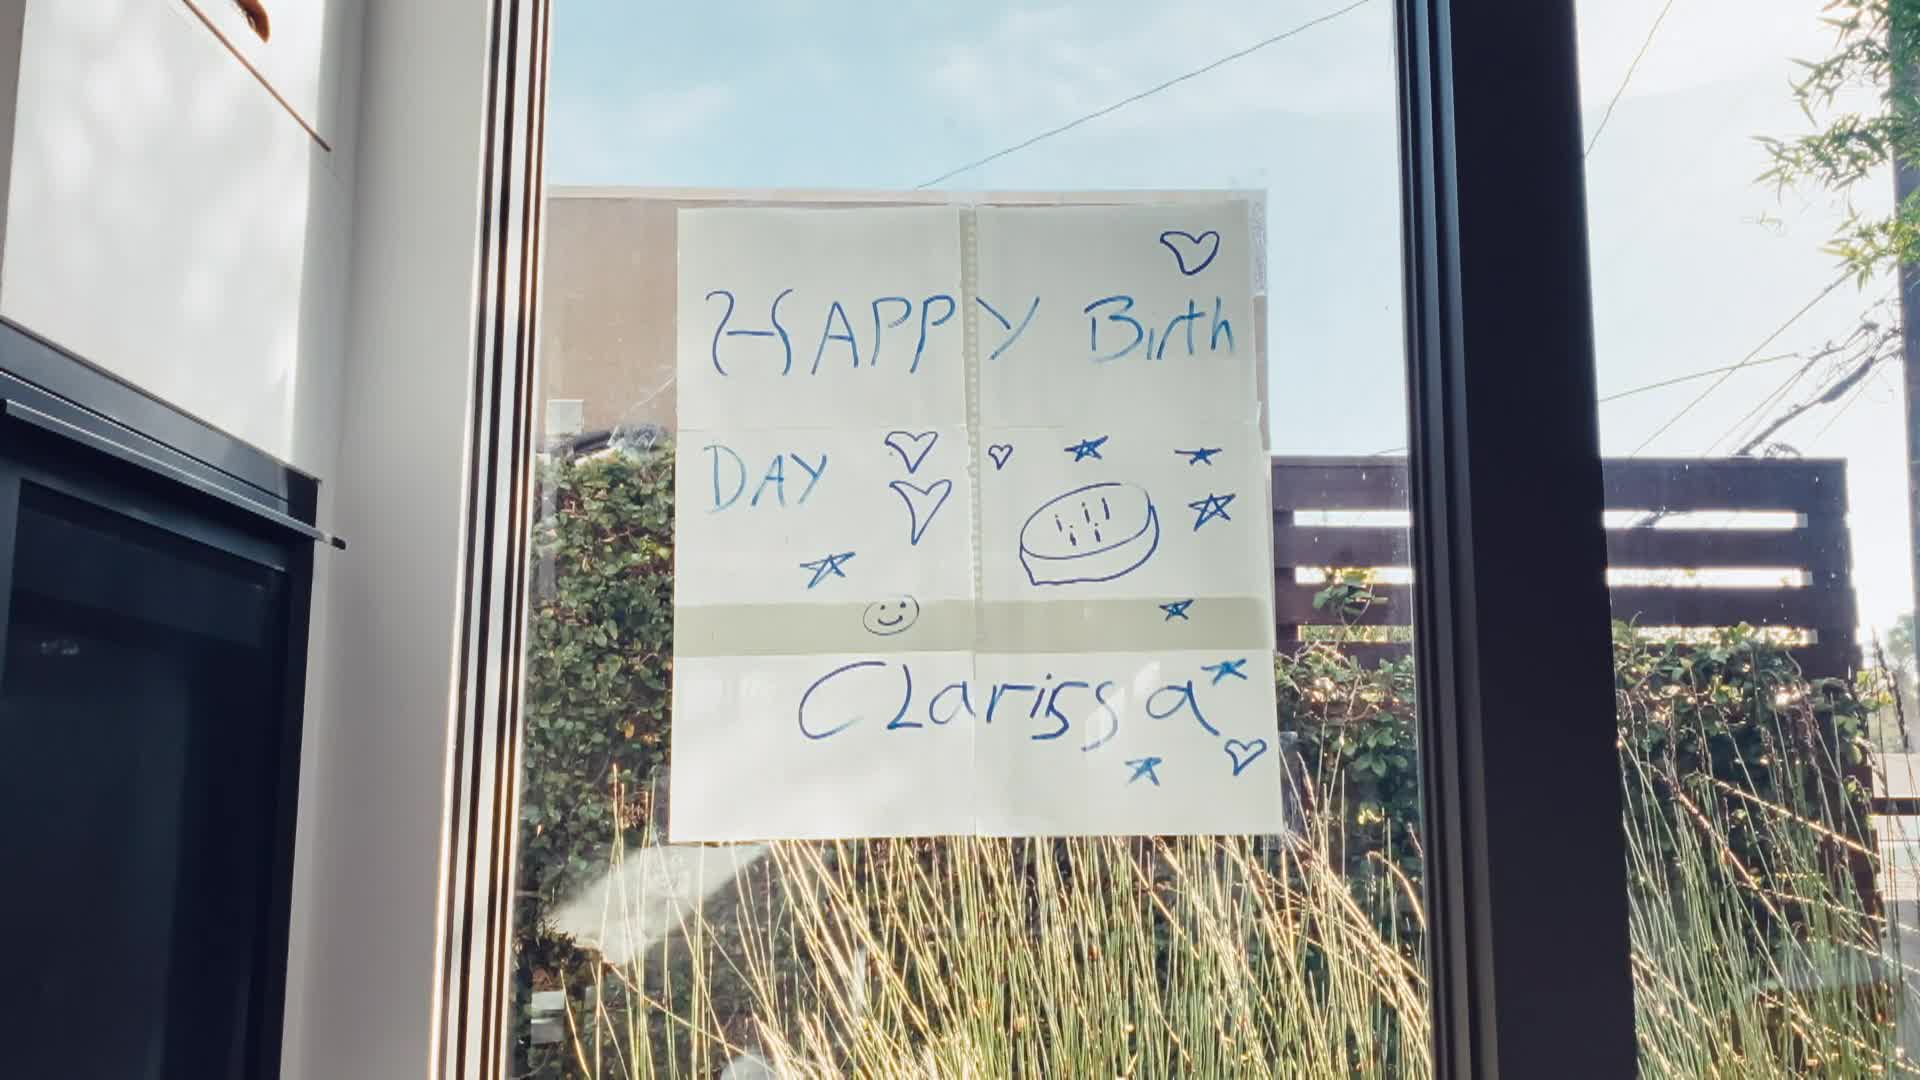 HAPPY Birth
DAY
CLarissa